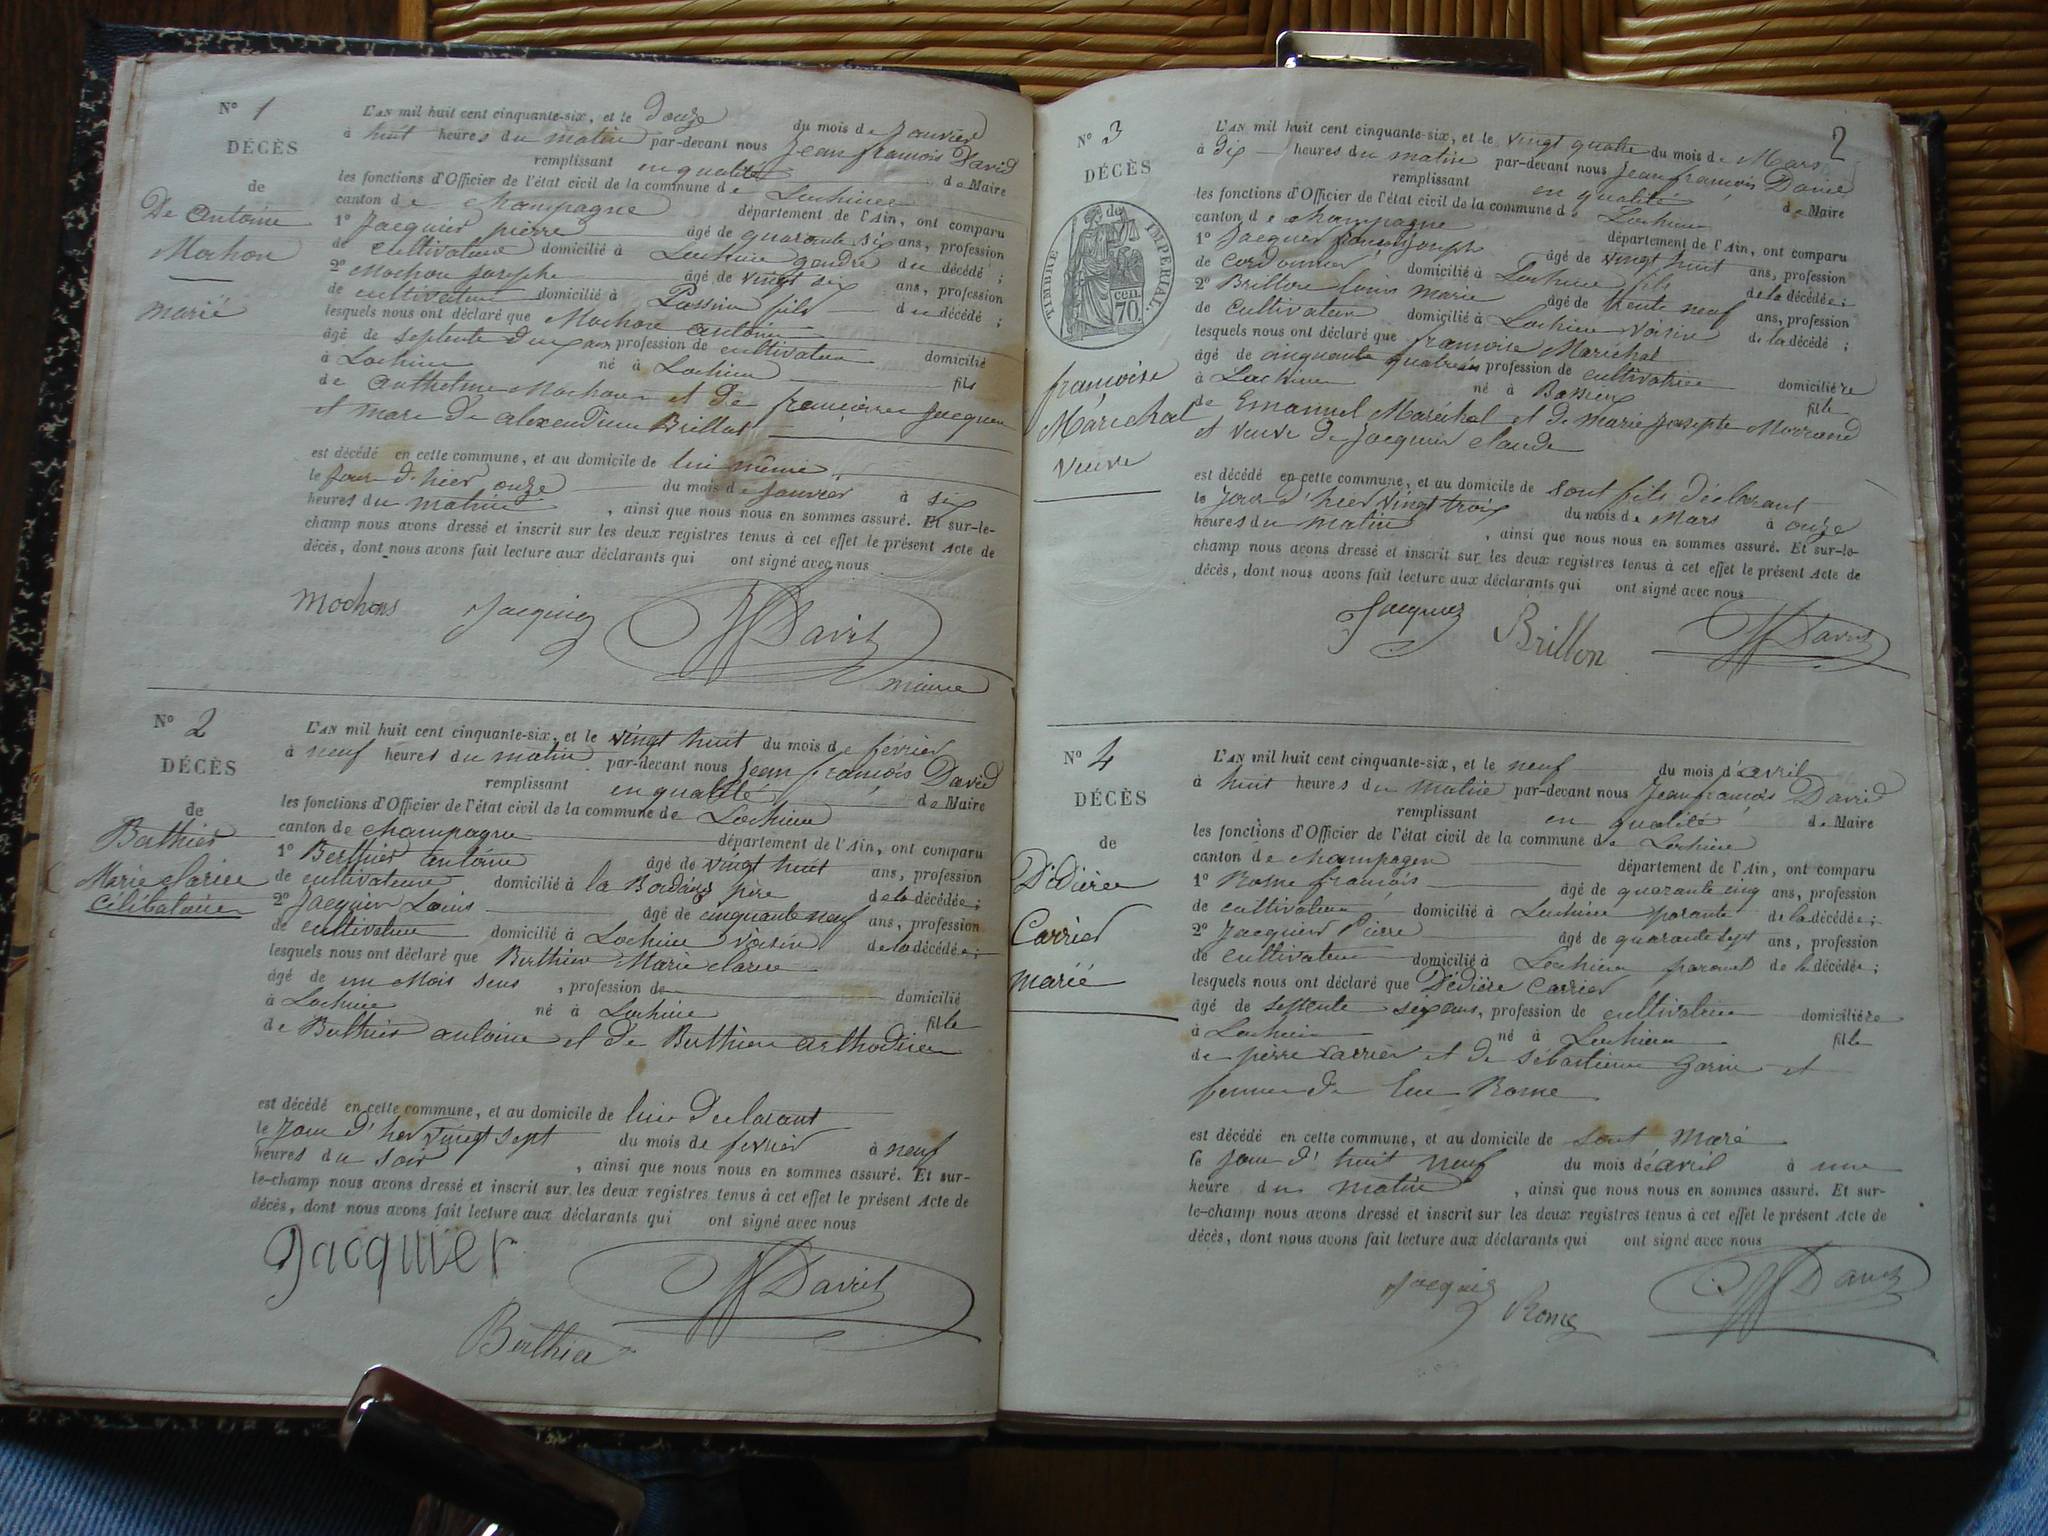 N° 1
DÉCÈS
de
De antoine
Mochon
marié
L'AN mil huit cent cinquante-six, et le douze du mois de Janvier
à huit heures du matin par-devant nous Jean françois David
remplissant en qualité de Maire
les fonctions d'Officier de l'état civil de la commune de Lochieu
canton de Champagne département de l'Ain, ont comparu
1° Jacquier pierre âgé de quarante six ans, profession
de cultivateur domicilié à Lochieu gendre du décédé ;
2° Mochon Joseph âgé de vingt six ans, profession
de cultivateur domicilié à Passin fils du décédé ;
lesquels nous ont déclaré que Mochon antoine
âgé de septente deux ans profession de cultivateur domicilié
à Lochieu né à Lochieu fils
de anthelme Mochon et de françoise Jacquier
et mare de alexendrine Brillat
est décédé en cette commune, et au domicile de lui même
le jour d'hier onze du mois de Janvier à six
heures du matin , ainsi que nous nous en sommes assuré. Et sur-le-
champ nous avons dressé et inscrit sur les deux registres tenus à cet effet le présent Acte de
décès, dont nous avons fait lecture aux déclarants qui ont signé avec nous
Mochons Jacquier JF David
maire
N° 2
DÉCÈS
de
Berthier
Marie clarice
Célibataire
L'AN mil huit cent cinquante-six, et le vingt huit du mois de février
à neuf heures du matin par-devant nous Jean françois David
remplissant en qualité de Maire
les fonctions d'Officier de l'état civil de la commune de Lochieu
canton de Champagne département de l'Ain, ont comparu
1° Berthier antoine âgé de vingt huit ans, profession
de cultivateur domicilié à la père de la décédée ;
2° Jacquier Louis âgé de cinquante neuf ans, profession
de cultivateur domicilié à Lochieu voisin de la décédée ;
lesquels nous ont déclaré que Berthier Marie clarice
âgé de un Mois sens , profession de domicilié
à Lochieu né à Lochieu fille
de Berthier antoine et de Berthier
est décédé en cette commune, et au domicile de declarant
le jour d'hier vingt sept du mois de fevrier à neuf
heures du soir , ainsi que nous nous en sommes assuré. Et sur-
le-champ nous avons dressé et inscrit sur les deux registres tenus à cet effet le présent Acte de
décès, dont nous avons fait lecture aux déclarants qui ont signé avec nous
Jacquier JF David
Berthier
2
N° 3
DÉCÈS
de
TIMBRE IMPÉRIAL.
70 cen
françoise
Maréchal
veuve
L'AN mil huit cent cinquante-six, et le vingt quatre du mois de Mars
à dix heures du matin par-devant nous Jean françois David
remplissant en qualité de Maire
les fonctions d'Officier de l'état civil de la commune de Lochieu
canton de champagne département de l'Ain, ont comparu
1° Jacquier françois Joseph âgé de vingt huit ans, profession
de cordonnier domicilié à Lochieu fils de la décédée ;
2° Brillon Louis Marie âgé de trente neuf ans, profession
de cultivateur domicilié à Lochieu voisin de la décédé ;
lesquels nous ont déclaré que françoise Maréchal
âgé de cinquante quatre ans profession de cultivatrice domiciliére
à Lochieu né à Passin fille
de Emanuel Maréchal et de marie Josepte Morrand
et veuve de Jacquier claude
est décédé en cette commune, et au domicile de sont fils déclarant
le jour d'hier vingt trois du mois de Mars à onze
heures du matin , ainsi que nous nous en sommes assuré. Et sur-le-
champ nous avons dressé et inscrit sur les deux registres tenus à cet effet le présent Acte de
décès, dont nous avons fait lecture aux déclarants qui ont signé avec nous
Jacquier Brillon JF David
N° 4
DÉCÈS
de
Dédière
Carrier
marié
L'AN mil huit cent cinquante-six, et le neuf du mois d'avril
à huit heures du matin par-devant nous Jean françois David
remplissant en qualité de Maire
les fonctions d'Officier de l'état civil de la commune de Lochieu
canton de champagne département de l'Ain, ont comparu
1° Rome françois âgé de quarante cinq ans, profession
de cultivateur domicilié à Lochieu parante de la décédée ;
2° Jacquier Pierre âgé de quarante sept ans, profession
de cultivateur domicilié à Lochieu de la décédée ;
lesquels nous ont déclaré que Dédière Carrier
âgé de septente six ans, profession de cultivatrice domiciliére
à Lochieu né à Lochieu fille
de pierre Carrier et de sébastienne Garin et
femme de Luc Rome
est décédé en cette commune, et au domicile de sont maré
le jour d' huit neuf du mois d'avril à une
heure du matin , ainsi que nous nous en sommes assuré. Et sur-
le-champ nous avons dressé et inscrit sur les deux registres tenus à cet effet le présent Acte de
décès, dont nous avons fait lecture aux déclarants qui ont signé avec nous
Jacquier Rome JF David